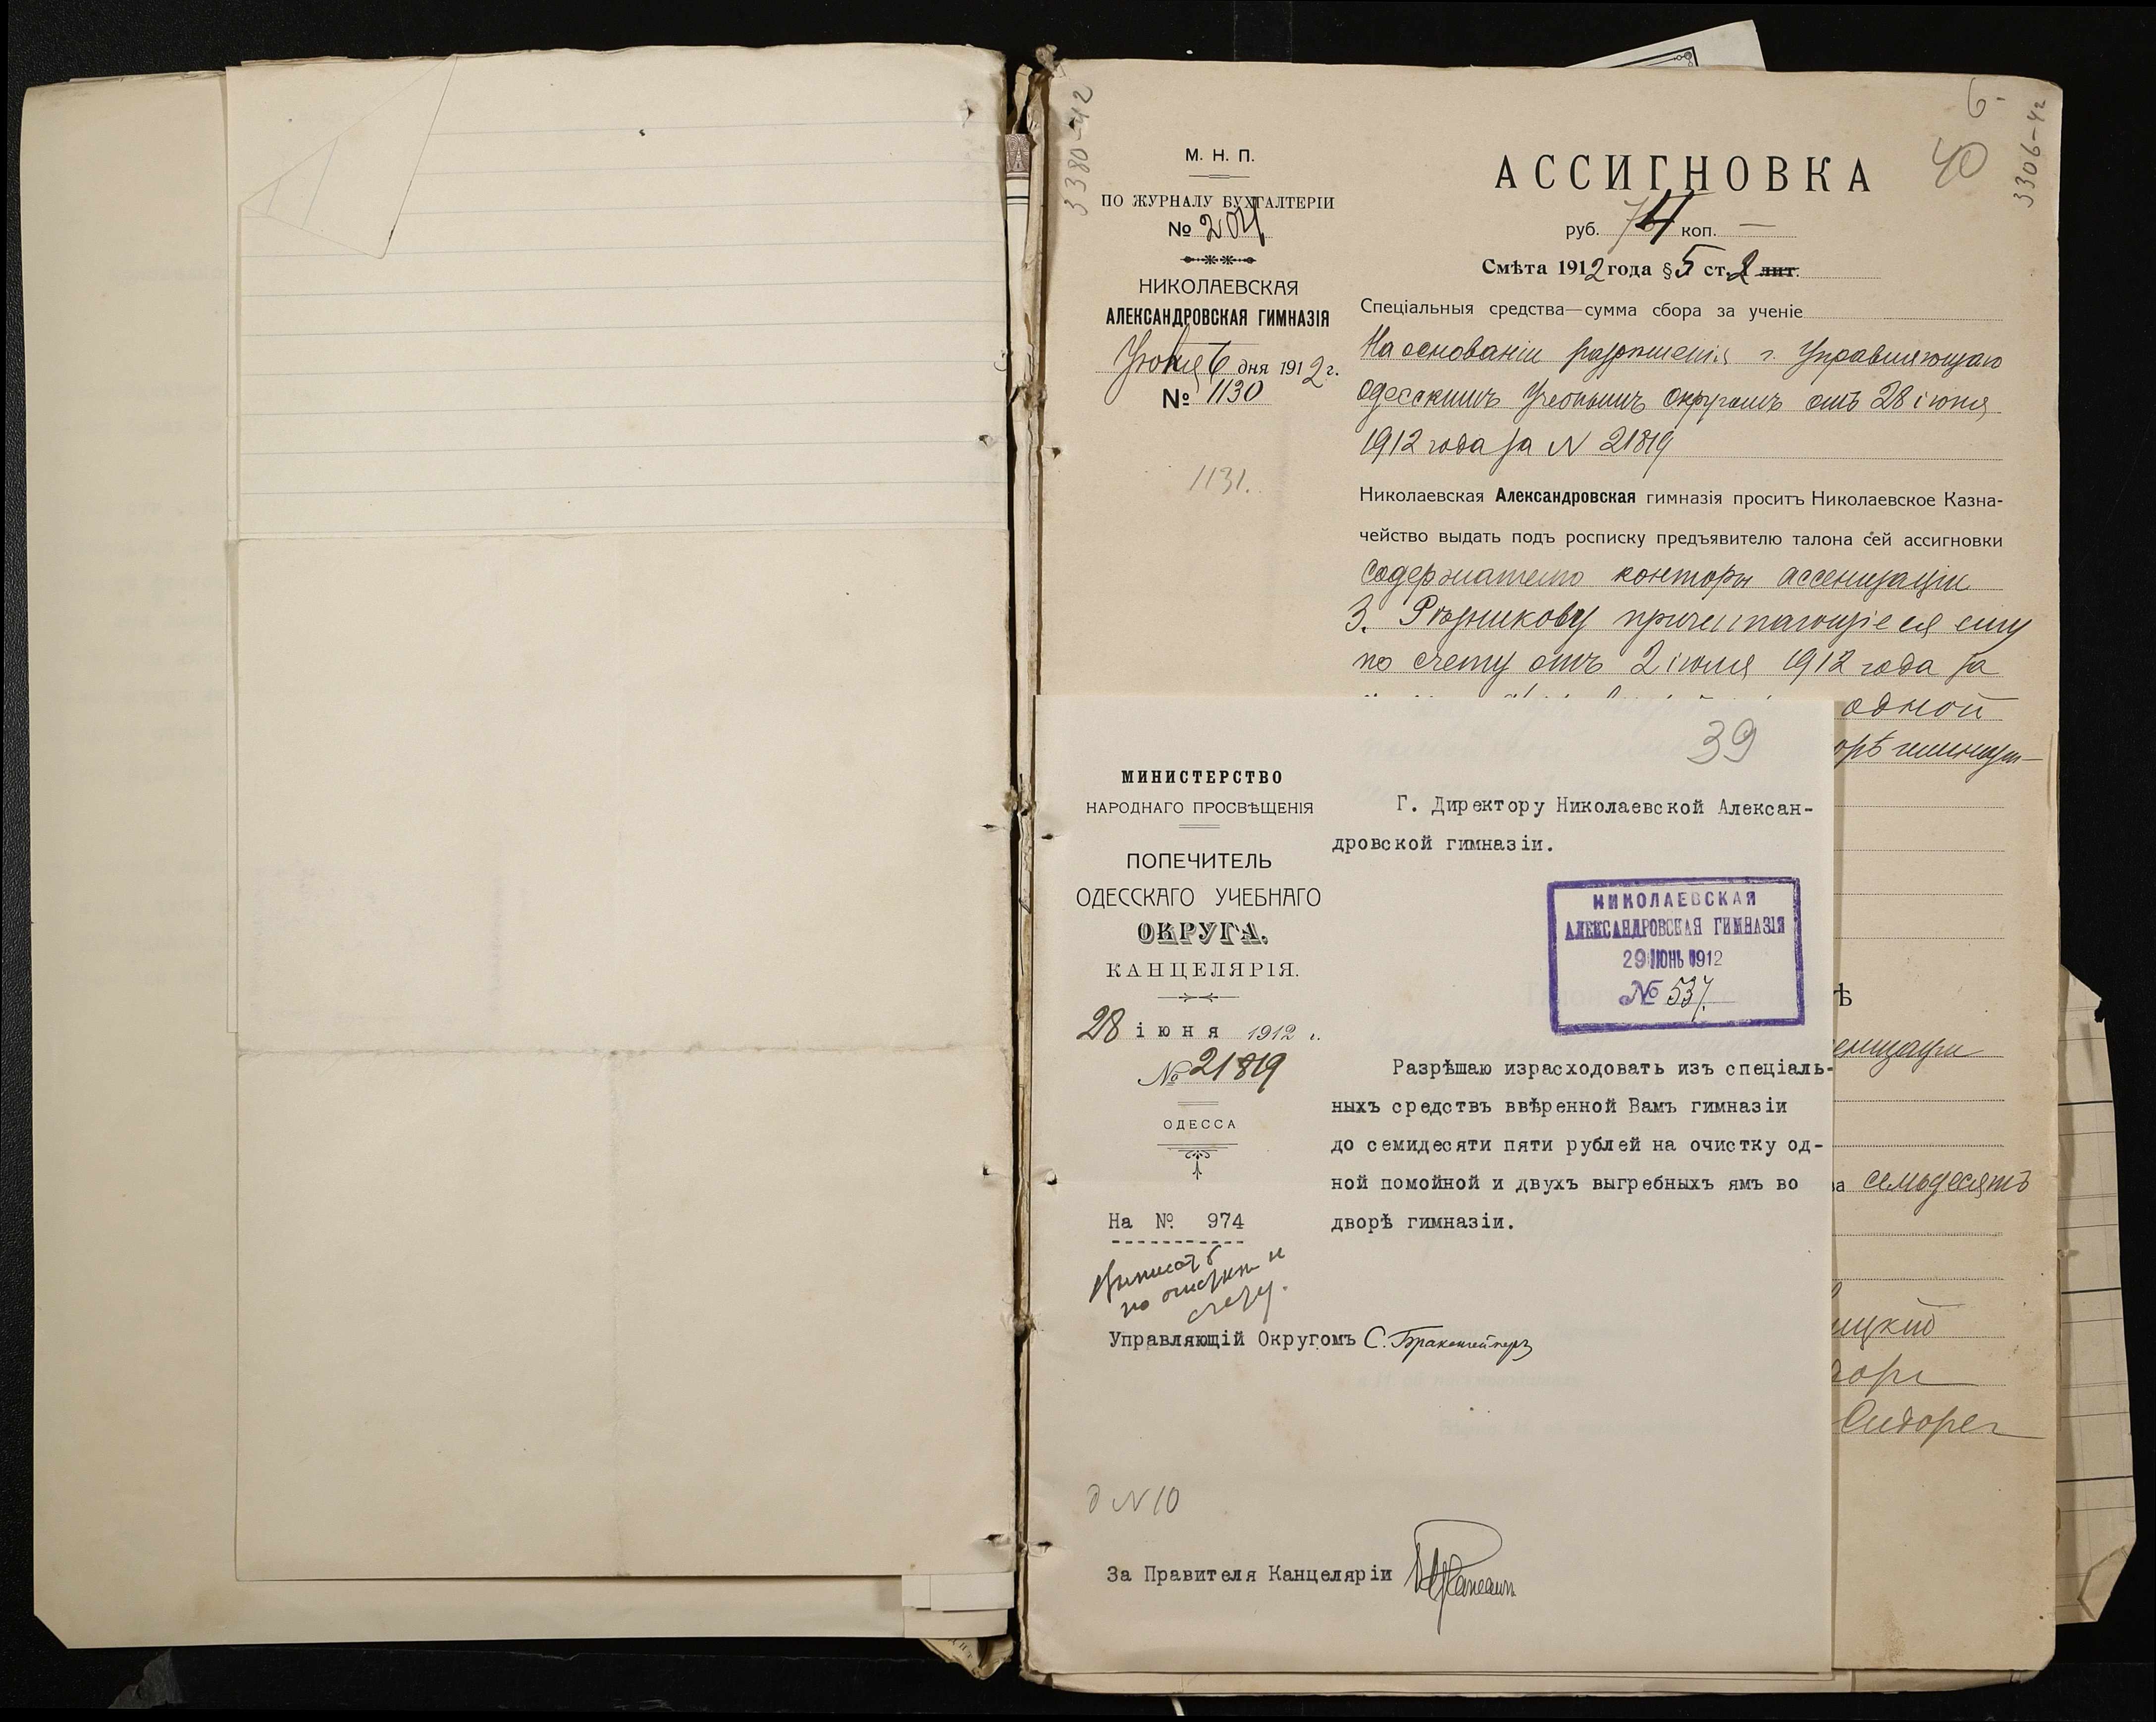 3380-42
6-
40
3306-42
М. Н. П.
ПО ЖУРНАЛУ БУХГАЛТЕРІИ
№ 204
НИКОЛАЕВСКАЯ
АЛЕКСАНДРОВСКАЯ ГИМНАЗІЯ
6 дня 1912 г.
№ 1130
1131.
АССИГНОВКА
руб. 74 коп. —
Смѣта 1912 года § 5 ст. 2 лит.
Спеціальныя средства—сумма сбора за ученіе
На основаніи разрѣшенія г. Управляющаго
Одесскимъ Учебнымъ Округомъ отъ 28 іюня
1912 года за N 21819
Николаевская Александровская гимназія проситъ Николаевское Казна-
чейство выдать подъ росписку предъявителю талона сей ассигновки
содержателю конторы ассенизаціи
З. Рѣзникову причитающіеся ему
по счету отъ 2 іюля 1912 года за
одной
ѣ
семьдесятъ
39
МИНИСТЕРСТВО
НАРОДНАГО ПРОСВѢЩЕНІЯ
ПОПЕЧИТЕЛЬ
ОДЕССКАГО УЧЕБНАГО
ОКРУГА.
КАНЦЕЛЯРІЯ.
28 іюня 1912 г.
№ 21819
ОДЕССА
На № 974
Выписать
по очисткѣ и
счету.
Г. Директору Николаевской Алексан-
дровской гимназіи.
НИКОЛАЕВСКАЯ
АЛЕКСАНДРОВСКАЯ ГИМНАЗІЯ
29 ІЮНЬ 1912
№ 537.
Разрѣшаю израсходовать изъ спеціаль-
ныхъ средствъ ввѣренной Вамъ гимназіи
до семидесяти пяти рублей на очистку од-
ной помойной и двухъ выгребныхъ ямъ во
дворѣ гимназіи.
Управляющій Округомъ С.
д N 10
За Правителя Канцеляріи